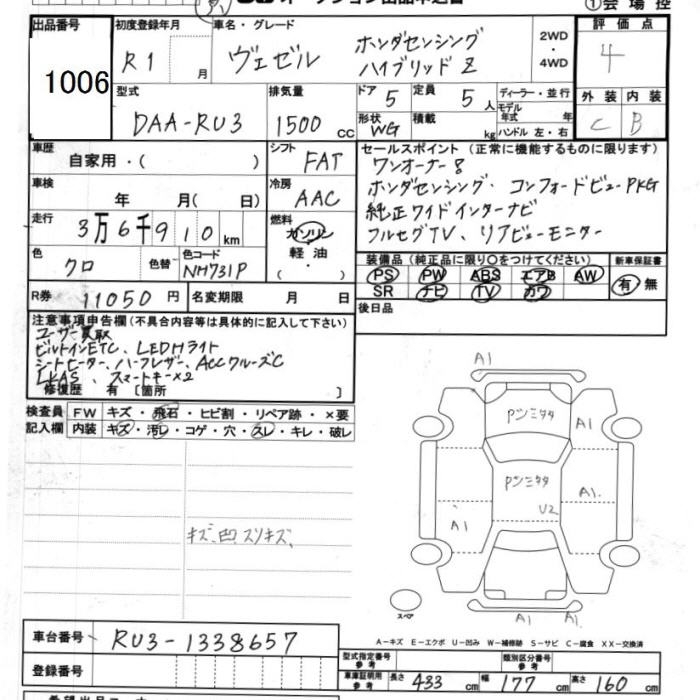 ①会場控
出品番号 初度登録年月 車名・グレード 評価点
1006
R1 月 ヴェゼル ホンダセンシング
ハイブリッドZ
2WD
・
4WD
4
型式 排気量 ドア 5 定員 5 人 ディーラー・並行 外装 内装
モデル
年式 年
DAA-RU3 1500 CC 形状 WG 積載 kg ハンドル 左・右 C B
車歴 自家用・( ) シフト FAT セールスポイント (正常に機能するものに限ります)
ワンオーナー8
車検 年 月( 日) 冷房 AAC ホンダセンシング・コンフォードビューPKG
走行 3万6千910km 燃料 純正ワイドインターナビ
ガソリン
軽油
・
フルセグTV、リアビューモニター
色 クロ 色替 色コード NH731P 装備品 (純正品に限り○をつけてください) 新車保証書
PS PW ABS エアB AW 有・無
R券 11050円 名変期限 月 日 SR ナビ TV カワ
後日品
注意事項申告欄 (不具合内容等は具体的に記入して下さい)
ユーザー買取
ビルトインETC、LEDHライト
シートヒーター、ハーフレザー、ACCクルーズC
LKAS、スマートキー×2
修復歴 有 [箇所 ]
検査員 FW キズ・飛石・ヒビ割・リペア跡・×要
記入欄 内装 キズ・汚レ・コゲ・穴・スレ・キレ・破レ
キズ、凹、スリキズ、
A1
Pンミタタ A1
Pンミタタ A1.
A1 U2
スペア
A1 A1
A-キズ E-エクボ U-凹み W-補修跡 S-サビ C-腐食 XX-交換済
車台番号 RU3-1338657
型式指定番号 参考 類別区分番号 参考
登録番号
車庫証明用 参考 長さ 433cm 幅 177cm 高さ 160cm